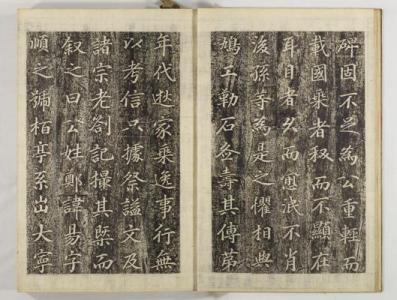 碑固不足為公重輕而
載國乘者秘而不顯在
耳目者久而泯不肖
後孫等為是之懼相與
鳩工勒石壽其傳第
年代逖家乘逸事行無
以考信只據祭謚文及
諸宗老劄記撮其槩而
叙之曰公姓鄭諱易字
順之號栢亭系出大寧